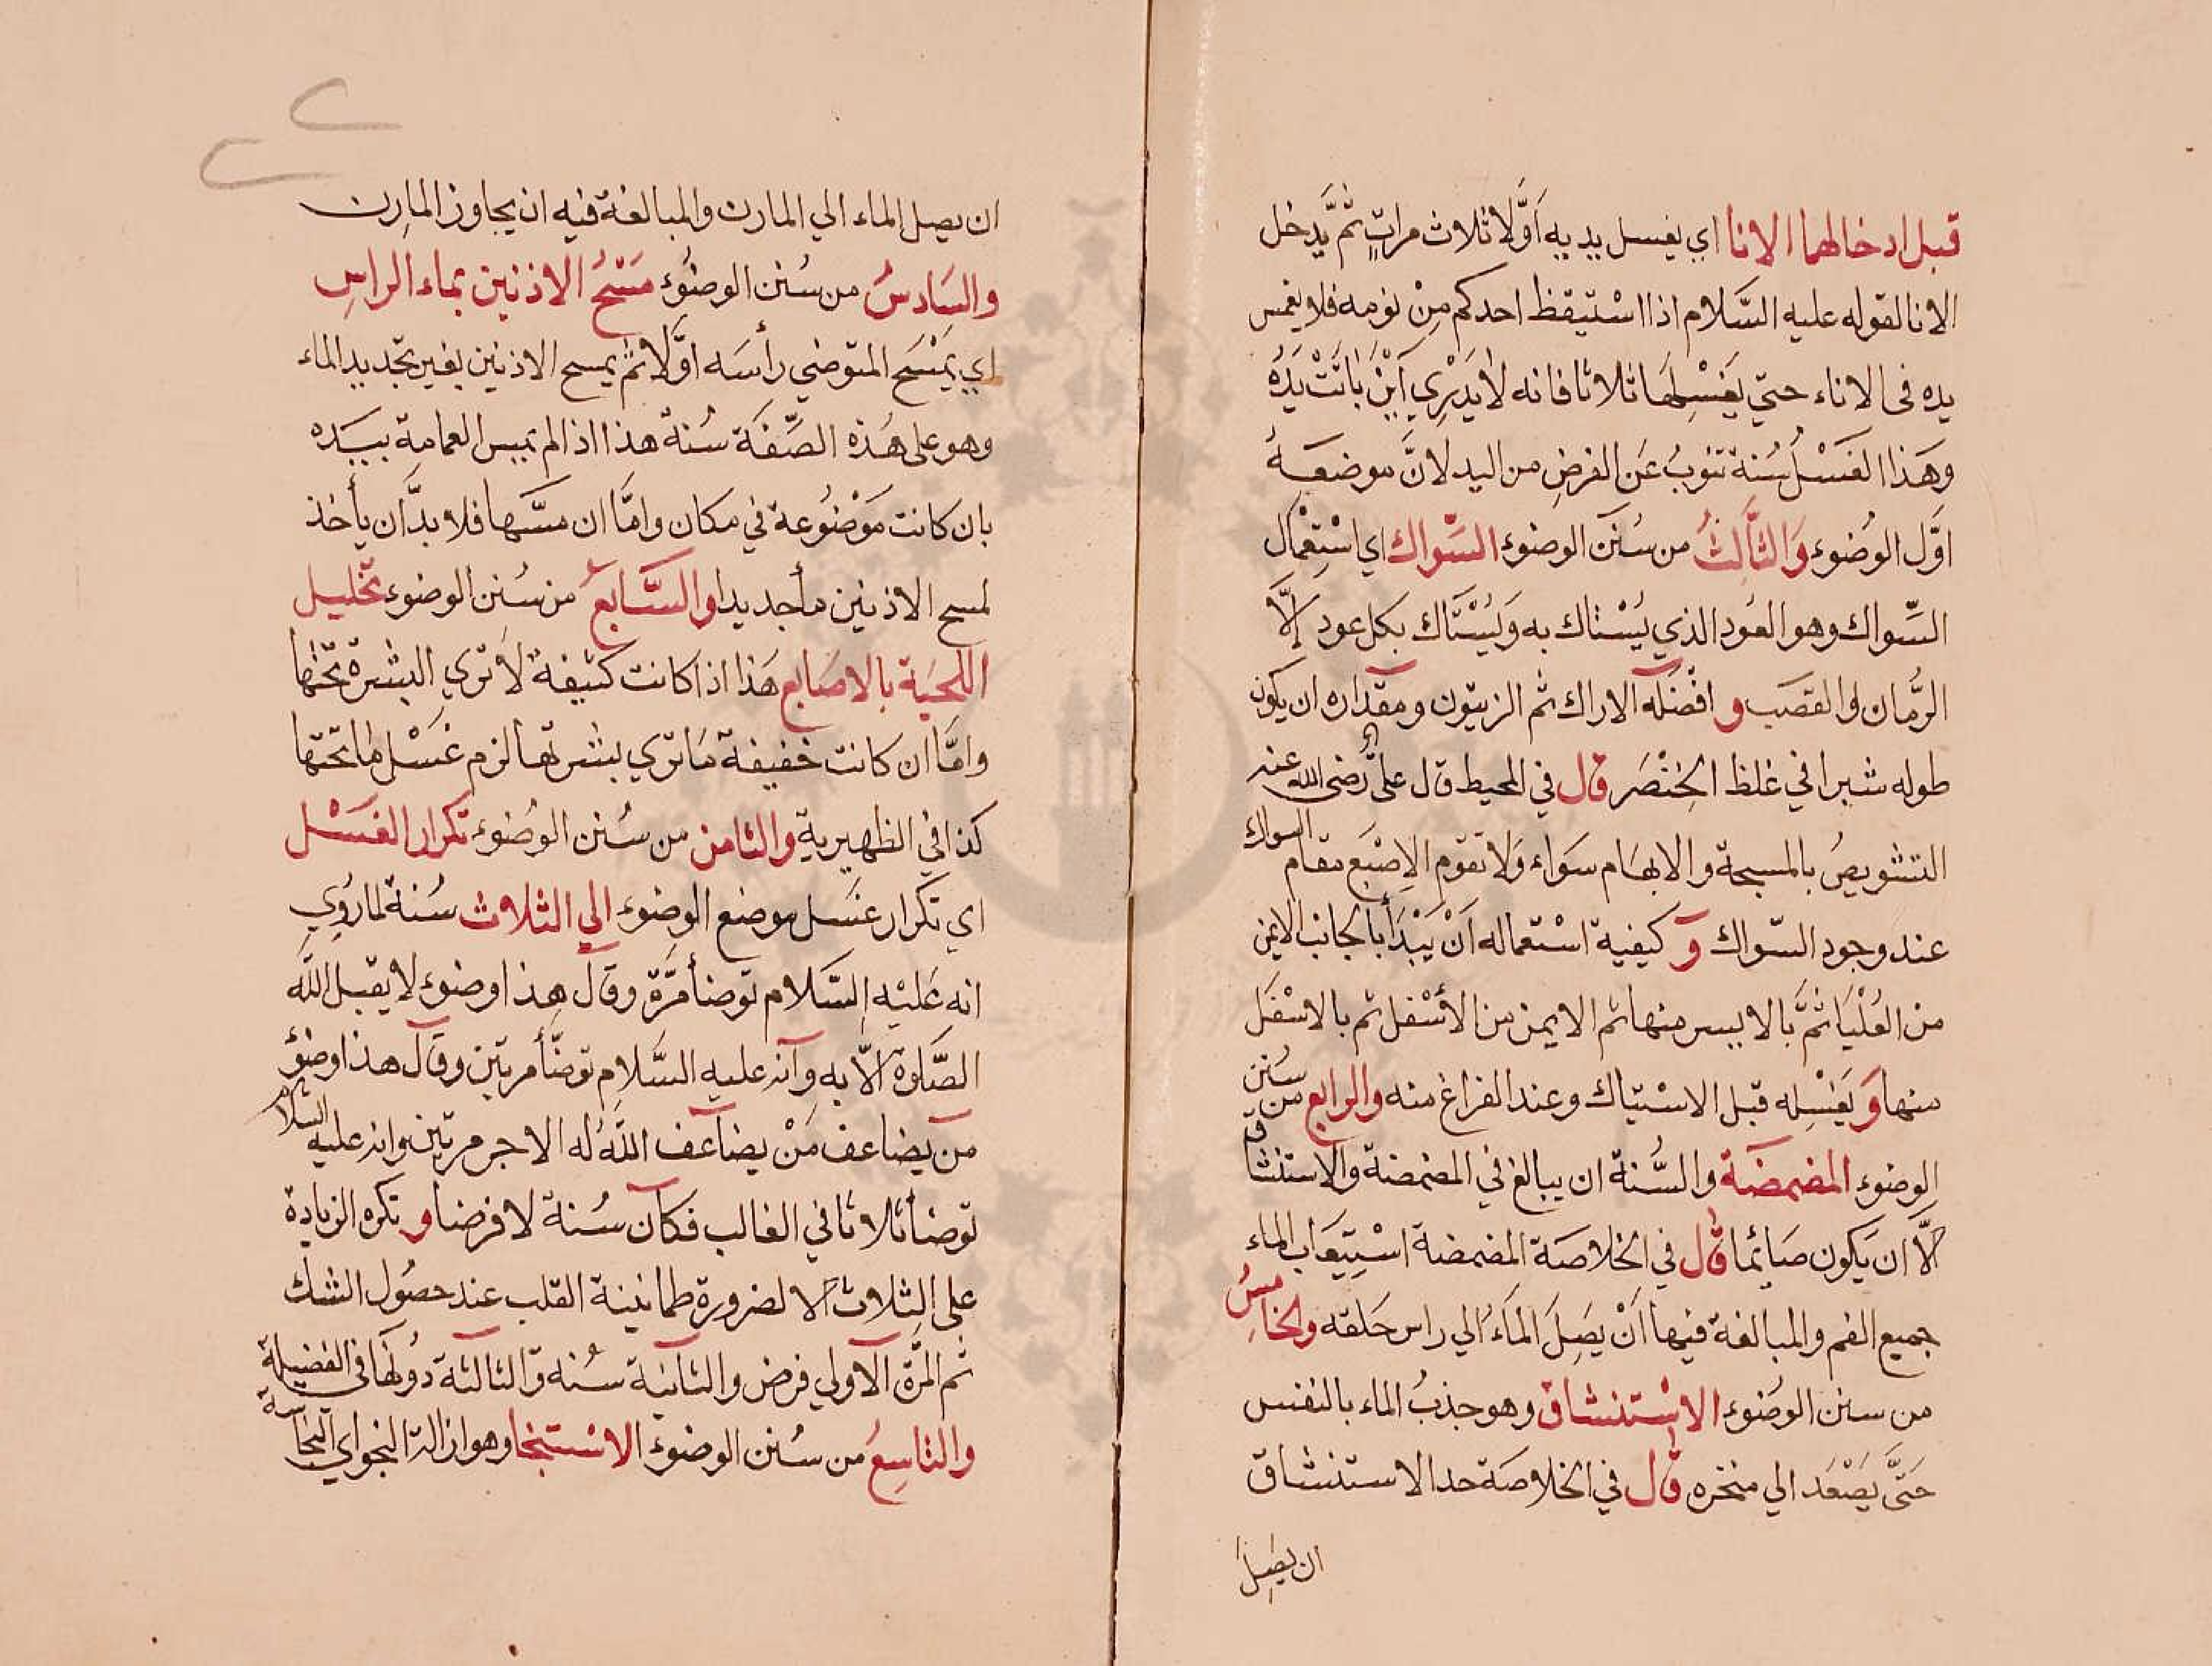 قبل ادخالهما الانا اي يغسل يديه اَوَّلا ثلاث مراتٍ ثمَّ يَّدخل
الانا لقوله عليه السَّلام اذا اسْتيقظ احدكم مِنْ نومه فلا يغمس
يده فى الاناء حتي يَغسْلِهَا ثلاثا فانه لاٰ يَدرْيِ اَيْنَ بَاتَتْ يَدُهُ
وهَذا الغَسْلُ سُنة تنوبُ عَن الفرضِ من اليد لانَّ موضعَهُ
اوَّل الوُضوء وَالثَّالِثُ من سُنَن الوضوء السّواك اي اسْتِعْمال
السِّواك وهو العُود الذي يُسْتاك به وَيُسْتَاك بكل عود اِلاَّ
الرُّمان والقصَب و افضَله الاراك ثم الزيتون ومقداره ان يكون
طوله شبرا في غلظ الخِنْصَر قال في المحيط قال عليٌّ رضى الله عنه
التشويصُ بالمسبحة والابهَام سَوَاء وَلا تقوم الاِصْبَع مقام السواك
عند وجود السّواك وَ كيفية اسْتعماله اَنْ يَبْدَأ بالجانب الايمن
من العُلْيَا ثمَّ بالايسر منها ثم الايمن من الأسْفل ثم بالاسْفَل
منها وَ يَغسْلِه قبل الاسْتياك وعند الفراغ منه والرابع من سُنن
الوضوء المضمضَة والسُّنة ان يبالغ في المضمضة والاستنشاق
الاّ ان يَكون صَائما قال في الخلاصَة المضمضة اسْتِيعَاب الماء
جميع الفم والمبالغة فيها اَنْ يصَلِ المَاءُ الي راس حَلقه والخامِسُ
من سنن الوضوء الاسْتنشاق وهو جذبُ الماء بالنفس
حَتيَّ يَصْعَد الي منخره قال في الخلاصَة حد الاستنشاق
ان يصِل
ان يصل الماء الي المارن والمبالغة فيه ان يجاوز المارِن
والسَادسُ من سُنن الوضوُء مَسْحُ الاذنين بماء الراسِ
اي يَمْسَح المتوضي رأسَه اوَّلا ثم يمسح الاذنين بغير تجديد الماء
وهو على هٰذه الصِّفَة سُنة هذا اذا لم يمس العمامة بيَده
بان كانت مَوْضُوعة في مكان وامَّا ان مسَّها فلا بدَّ ان يأخذ
لمسح الاذنين مأ جديدا والسَّابعُ من سُنن الوضوء تخليل
اللحيَة بالاصَابع هَذا اذا كانت كثيفة لا تري البشرة تحتها
وامَّا ان كانت خفيفة مَا تري بشرتها لزم غَسْل ما تحتها
كذا في الظهيرية والثامن من سُنن الوُضوء تكرار الغَسْل
اي تكرار غسَل موضع الوضوء الي الثلاث سُنة لما رُوِي
انه عَليْه السَّلام توضأ مَرَّة وقال هذا وضوء لا يقبل اللّه
الصَّلوة الاّ به وانه عليه السَّلام توضّأ مرتين وقال هذا وضؤ
من يضاعف مَنْ يضاعف اللّهُ له الاجر مرتين وانه عليه السلام
توضأ ثلاثا في الغالب فكان سُنة لا فرضا و تكره الزيادة
على الثلاث الا لضرورة طمانينة القلب عند حصُول الشك
ثم المَرَّة الاولي فرض والثانيَة سُنه والثالثة دُونهَا في الفضيلة
والتاسِعُ من سُنن الوضوء الاسْتنجا وهو ازالة النجو اي النجاسة